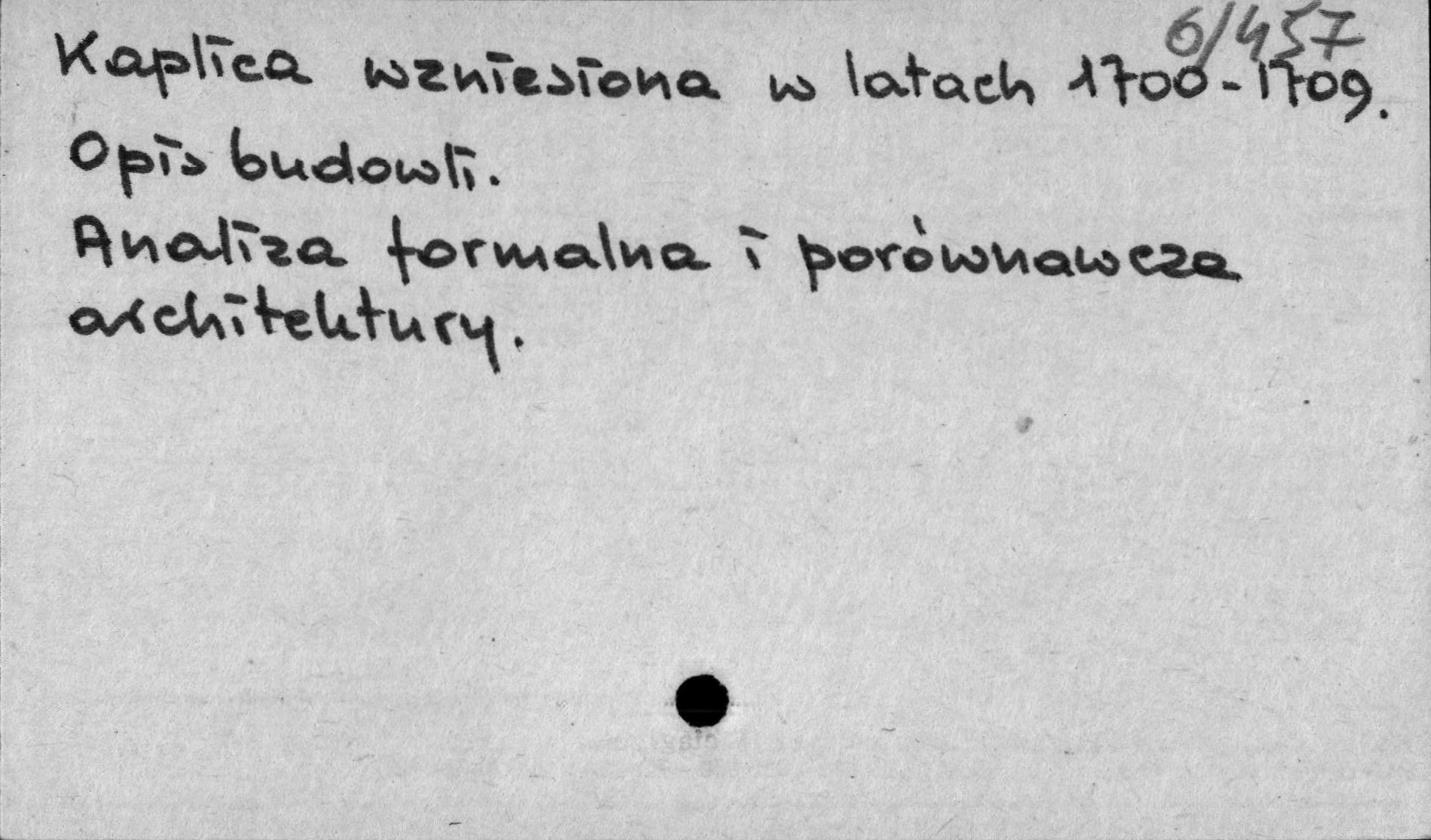 6/457
Kaplica wzniesiona w latach 1700-1709.
Opis budowli.
Analiza formalna i porównawcza
architektury.